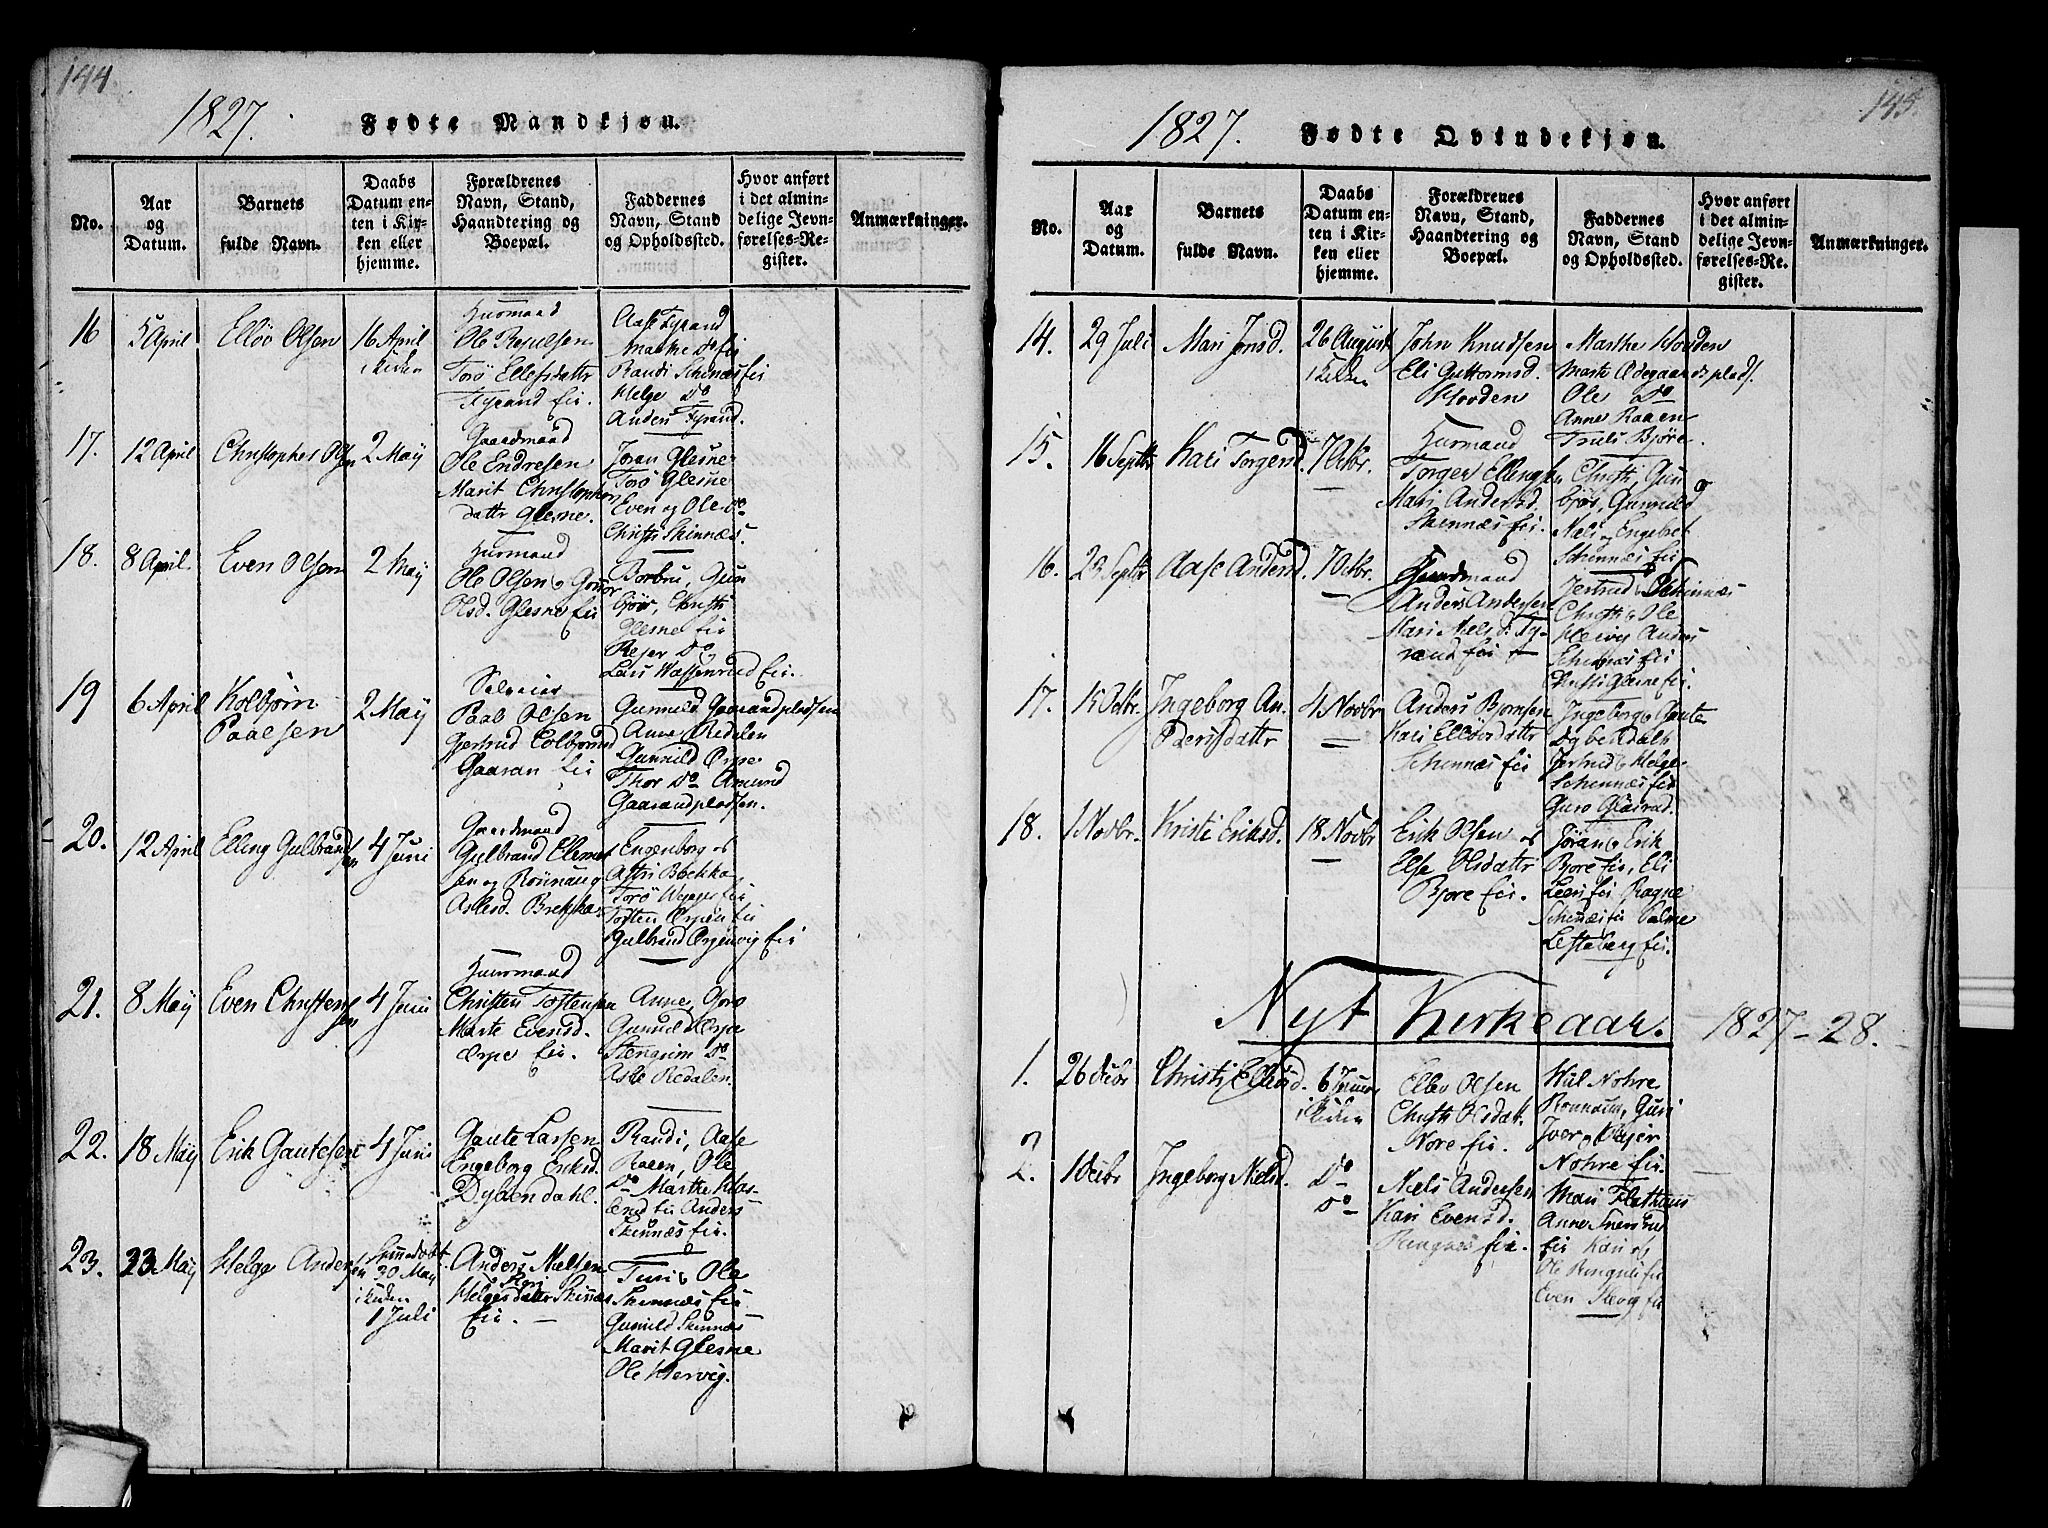 144
1827.
Fødte Mandkjøn.
No.
Aar
og
Datum.
Barnets
fulde Navn.
Daabs
Datum en-
ten i Kir-
ken eller
hjemme.
Forældrenes
Navn, Stand,
Haandtering og
Boepæl.
Faddernes
Navn, Stand
og Opholdssted.
Hvor anført
i det almin-
delige Jevn-
førelses-Re-
gister.
Anmærkninger.
16
5 April
Ellöv Olsen
16 April
i kirken
Huusmand
Ole
Torö Ellefsdattr
Fyrand Eie.
Aase Fyrand
Marthe Do Eie
Randi Skinnæs Eie
Helge Do
Anders Fyrand.
17.
12 April
Christopher Olsen
2 May
Gaardmand
Ole Endresen
Marit Christopher
dattr Glesne.
Joran Glesne
Torö Glesne
Even og Ole Do
Christi Skinnæs.
18.
8 April
Even Olsen
2 May
Huusmand
Ole Olsen og
Olsd. Glesne Eie
Borbru, Gun
björ, Christi
Glesne Eie
Rejer Do
Lars Wassenrud Eie.
19
6 April
Kolbjørn
Paalsen
2 May
Paal Olsen
Gjertrud Colbjørnsd
Gaaran Eie
Gunnild Gaarandpladsen
Anne Redalen
Gunnild Ørpe
Thor Do Amund
Gaarandpladsen.
20.
12 April
Elling Gulbrandsen
4 Juni
Gaardmand
Gulbrand
sen og Rönnaug
Aslesd. Brekka
Engenborg og
Astri Brekka
Torö Eie
Torsten Ørpen Eie
Gulbrand Eie
21.
8 May
Even Christensen
4 Juni
Huusmand
Christen Tostensen
Marte Evensd.
Ørpe Eie.
Anne, Goro
Gunnild Ørpe
Stengrim Do
Asle Redalen.
22.
18 May
Erik Gautesen
4 Juni
Gaute Larsen
Engeborg Eriksd.
Dybendahl.
Randi, Aase
Raaen, Ole
Do Marthe
Eie Anders
Skinnæs Eie.
23.
23 May
Helge Andersen
30 May
i kirken
1 Juli
Anders Nielsen
Kari
Helgesdattr Skinnæs
Eie.
Turi og Ole
Skinnæs Eie
Gunnild Skinnæs
Marit Glesne
Ole Hervig.
145.
1827.
Fødte Qvindekjøn.
No.
Aar
og
Datum.
Barnets
fulde Navn.
Daabs
Datum en-
ten i Kir-
ken eller
hjemme.
Forældrenes
Navn, Stand,
Haandtering og
Boepæl.
Faddernes
Navn, Stand
og Opholdssted.
Hvor anført
i det almin-
delige Jevn-
førelses-Re-
gister.
Anmærkninger.
14.
29 Juli
Mari Jonsd.
26 August
i kirken
John Knudsen
Eli Guttormsd.
Hovden
Marthe Hovden
Marte Ødegaardsplads.
Ole Do
Anne Raaen
Truls Bjøre.
15.
16 Septbr
Kari Torgersd.
7 Octbr.
Huusmand
Torger Ellingsen
Mari Andersd.
Skinnæs Eie.
Christi, Gun
björ, Gunnild
Niels og Engebret
Schinnæs Eie
16.
23 Septbr
Aase Andersd.
7 Octbr.
Gaardmand
Anders Andersen
Mari Nielsd. Fy-
rand Eie
Jertrud Schinnæs
Christi og Ole
Hervig Anders
Schinnæs Eie
Christi Glesne Eie.
17.
15 Octbr.
Ingeborg An-
dersdattr
4 Novbr
Anders Bjørnsen
Kari Ellövsdattr
Schinnæs Eie
Ingeborg og Gaute
Dybendahl
Jertrud og Helge
Schinnæs Eie
Guro Glasrud.
18.
1 Novbr.
Kristi Eriksd.
18 Novbr
Erik Olsen og
Else Olsdattr
Bjøre Eie.
Jøran og Erik
Bjøre Eie, Eli
Leen Eie Ragne
Schinnæs Eie
Lesteberg Eie.
Nyt Kirkeaar. 1827-28.
1.
26 Decbr
Christi Ellevsd.
6 Januar
i kirken
Ellev Olsen
Christi Olsdatt.
Nore Eie.
Nohre
Ronnaug, Guri
Iver, Rejer
Nohre Eie.
2.
1 Decbr
Ingeborg Nielsd.
Do
Do
Niels Andersen
Kari Evensd.
Ringnæs Eie.
Mari Flathuus
Anne Snersrud
Eie Kari og
Ole Ringnæs Eie
Even Eie